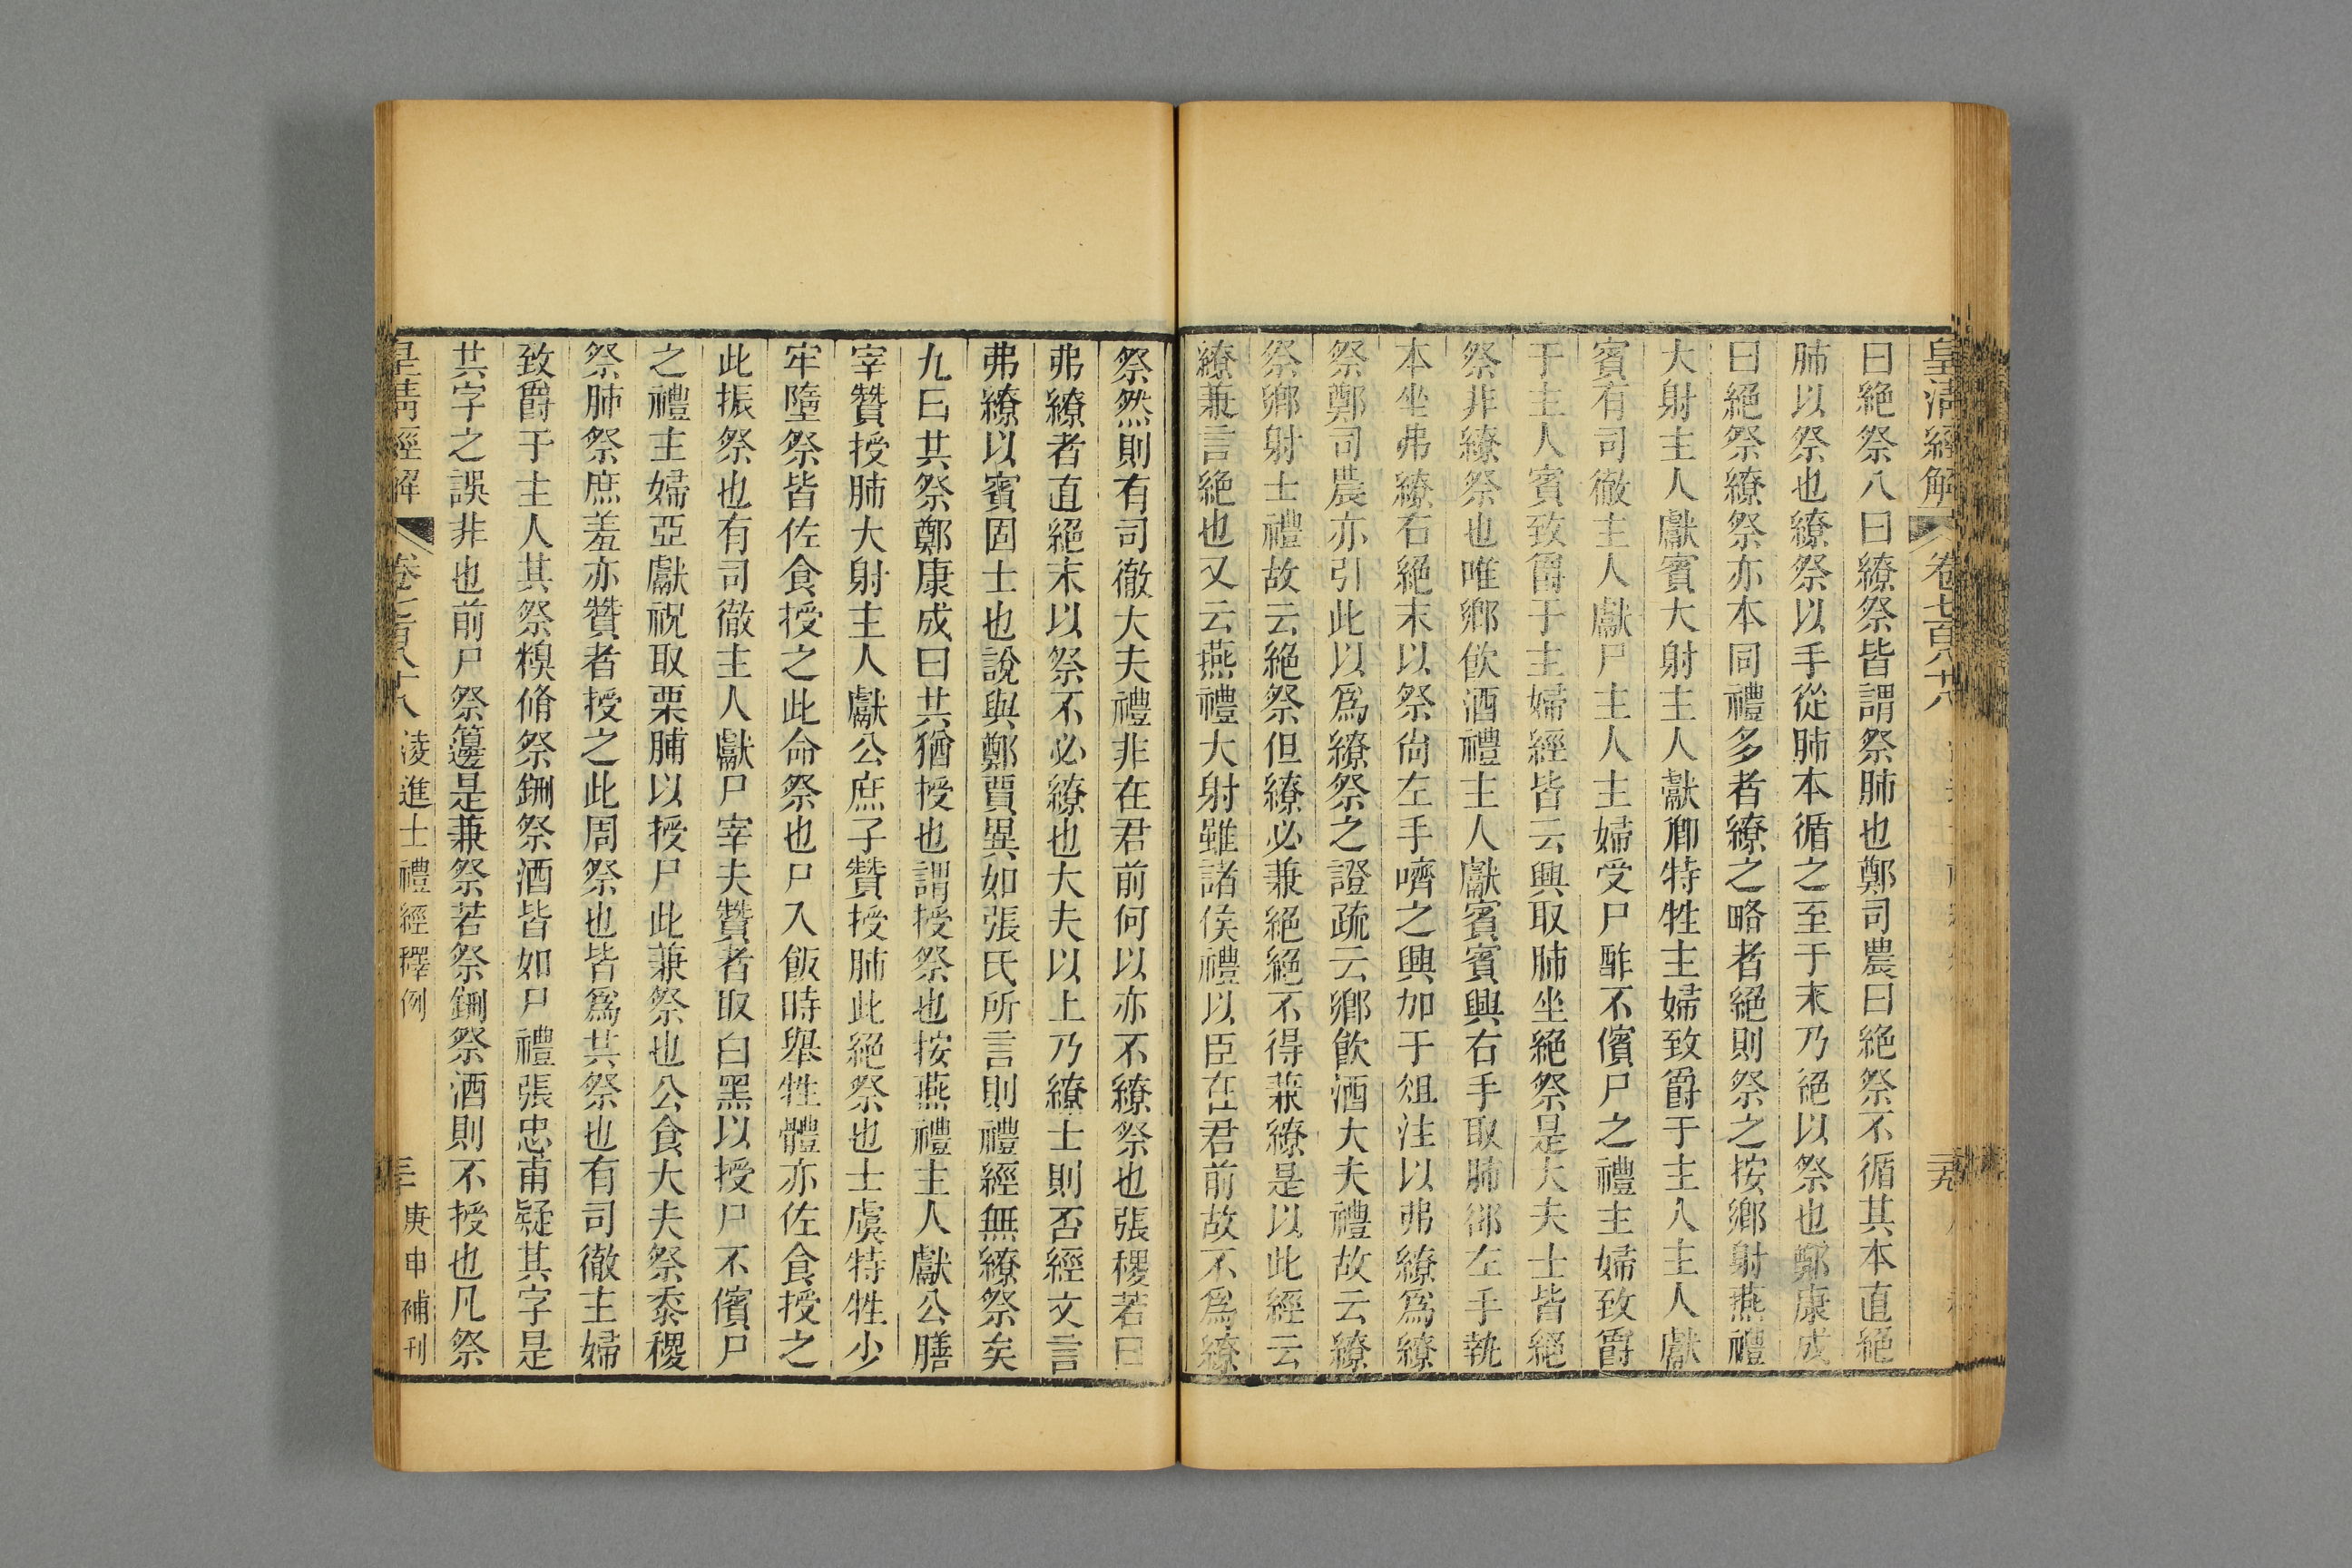 皇清經解 卷七百八十八 三十九
曰絕祭八曰繚祭皆謂祭肺也鄭司農曰絕祭不循其本直絕
肺以祭也繚祭以手從肺本循之至于末乃絕以祭也鄭康成
曰絕祭繚祭亦本同禮多者繚之略者絕則祭之按鄉射燕禮
大射主人獻賓大射主人獻卿特牲主婦致爵于主人主人獻
賓有司徹主人獻尸主人主婦受尸酢不儐尸之禮主婦致爵
于主人賓致爵于主婦經皆云興取肺坐絕祭是大夫士皆絕
祭非繚祭也唯鄉飲酒禮主人獻賓賓興右手取肺卻左手執
本坐弗繚右絕末以祭尙左手嚌之興加于俎注以弗繚爲繚
祭鄭司農亦引此以爲繚祭之證疏云鄉飮酒大夫禮故云繚
祭鄉射士禮故云絕祭但繚必兼絕絕不得兼繚是以此經云
繚兼言絕也又云燕禮大射雖諸侯禮以臣在君前故不爲繚
祭然則有司徹大夫禮非在君前何以亦不繚祭也張稷若曰
弗繚者直絕末以祭不必繚也大夫以上乃繚士則否經文言
弗繚以賓固士也說與鄭賈異如張氏所言則禮經無繚祭矣
九曰共祭鄭康成曰共猶授也謂授祭也按燕禮主人獻公膳
宰贊授肺大射主人獻公庶子贊授肺此絕祭也士虞特牲少
牢墮祭皆佐食授之此命祭也尸入飯時舉牲體亦佐食授之
此振祭也有司徹主人獻尸宰夫贊者取白黑以授尸不儐尸
之禮主婦亞獻祝取栗脯以授尸此兼祭也公食大夫祭黍稷
祭肺祭庶羞亦贊者授之此周祭也皆爲共祭也有司徹主婦
致爵于主人其祭糗脩祭鉶祭酒皆如尸禮張忠甫疑其字是
共字之誤非也前尸祭籩是兼祭若祭鉶祭酒則不授也凡祭
皇清經解 卷七百八十八 淩進士禮經釋例 庚申補刊